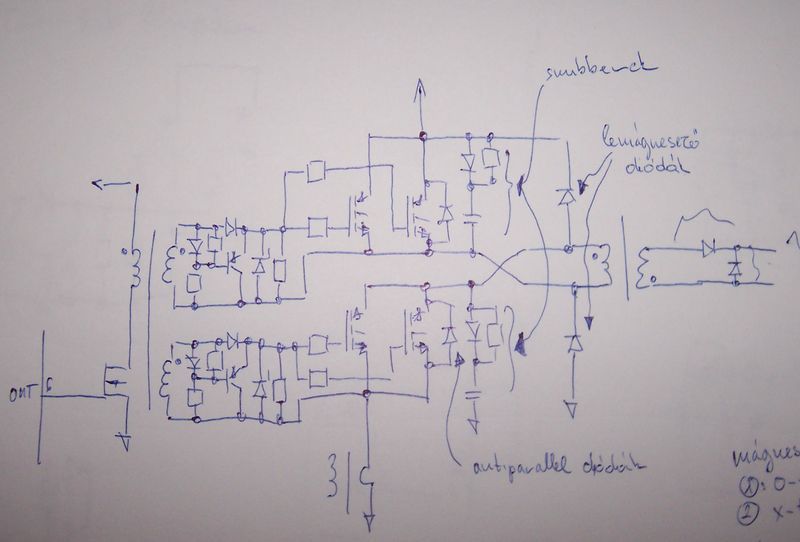 snubberek
lemágnesező
diódák
OUT 6
antiparallel diódák
mágnes
①: 0-
② x-